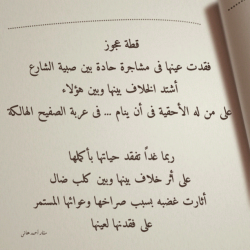 قطة عجوز
فقدت عينها فى مشاجرة حادة بين صبية الشارع
أشتد الخلاف بينها وبين هؤلاء
على من له الأحقية فى أن ينام ... فى عربة الصفيح الهالكة
ربما غداً تفقد حياتها بأكملها
على أثر خلاف بينها وبين كلب ضال
أثارت غضبه بسبب صراخها وعوائها المستمر
على فقدنها لعينها